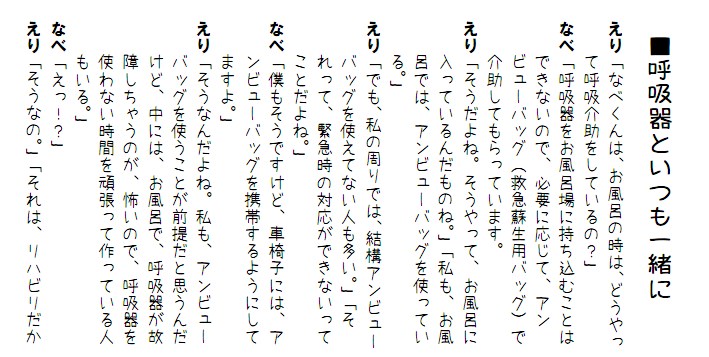 ■呼吸器といつも一緒に
えり「なべくんは、お風呂の時は、どうやっ
て呼吸介助をしているの？」
なべ「呼吸器をお風呂場に持ち込むことは
できないので、必要に応じて、アン
ビューバッグ（救急蘇生用バッグ）で
介助してもらっています。
えり「そうだよね。そうやって、お風呂に
入っているんだものね。」「私も、お風
呂では、アンビューバッグを使ってい
る。」
えり「でも、私の周りでは、結構アンビュー
バッグを使えてない人も多い。」「そ
れって、緊急時の対応ができないって
ことだよね。」
なべ「僕もそうですけど、車椅子には、ア
ンビューバッグを携帯するようにして
ますよ。」
えり「そうなんだよね。私も、アンビュー
バッグを使うことが前提だと思うんだ
けど、中には、お風呂で、呼吸器が故
障しちゃうのが、怖いので、呼吸器を
使わない時間を頑張って作っている人
もいる。」
なべ「えっ！？」
えり「そうなの。」「それは、リハビリだか